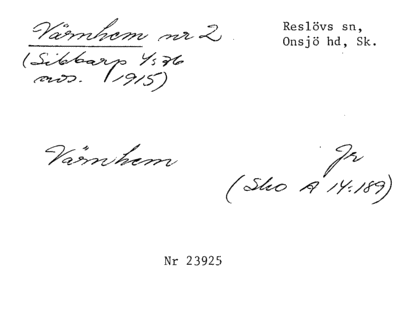 Värnhem nr 2
Reslövs sn,
Onsjö hd, Sk.
(Sibbarp 4:36
avs. 1915)
Värnhem
Jr
(Sko A 14:189)
Nr 23925